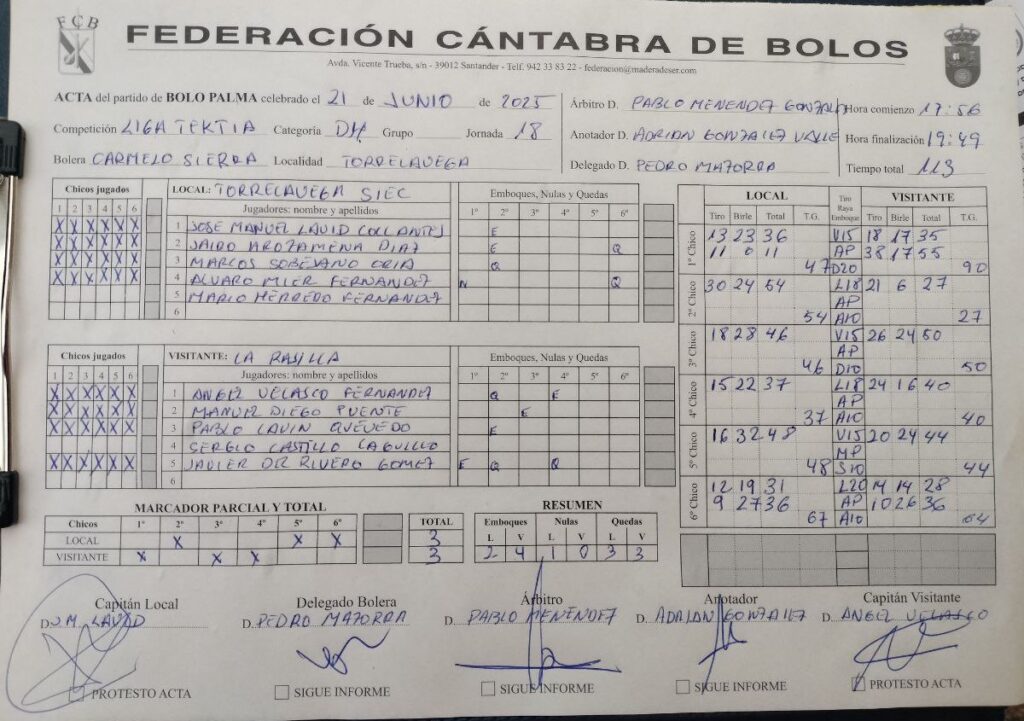 FCB
FEDERACIÓN CÁNTABRA DE BOLOS
Avda. Vicente Trueba, s/n - 39012 Santander - Telf. 942 33 83 22 - federacion@maderadeser.com
ACTA del partido de BOLO PALMA celebrado el 21 de JUNIO de 2025
Competición LIGA TEKTIA Categoría DH Grupo Jornada 18
Bolera CARMELO SIERRA Localidad TORRELAVEGA
Árbitro D. PABLO MENENDEZ GONZALO Hora comienzo 17:56
Anotador D. ADRIAN GONZALEZ VALLE Hora finalización 19:49
Delegado D. PEDRO MAZORRA Tiempo total 113
Chicos jugados LOCAL: TORRELAVEGA SIEC Emboques, Nulas y Quedas
1 2 3 4 5 6 Jugadores: nombre y apellidos 1º 2º 3º 4º 5º 6º
X X X X X X 1 JOSE MANUEL LAVID COLLANTES E
X X X X X X 2 JAIRO AROZAMENA DIAZ E Q
X X X X X X 3 MARCOS SOBEJANO ORIA Q
X X X X X X 4 ALVARO MIER FERNANDEZ N Q
5 MARIO HERRERO FERNANDEZ
6
Chicos jugados VISITANTE: LA RASILLA Emboques, Nulas y Quedas
1 2 3 4 5 6 Jugadores: nombre y apellidos 1º 2º 3º 4º 5º 6º
X X X X X X 1 ANGEL VELASCO FERNANDEZ Q E
X X X X X X 2 MANUEL DIEGO PUENTE E
X X X X X X 3 PABLO LAVIN QUEVEDO E
4 SERGIO CASTILLO LAGUILLO
X X X X X X 5 JAVIER DEL RIVERO GOMEZ E Q Q
6
LOCAL Tiro Raya Emboque VISITANTE
Tiro Birle Total T.G. Tiro Birle Total T.G.
1º Chico 13 23 36 V15 18 17 35
11 0 11 AP 38 17 55
47 D20 90
2º Chico 30 24 54 L18 21 6 27
AP
54 A10 27
3º Chico 18 28 46 V15 26 24 50
AP
46 D10 50
4º Chico 15 22 37 L18 24 16 40
AP
37 A10 40
5º Chico 16 32 48 V15 20 24 44
MP
48 S10 44
6º Chico 12 19 31 L20 14 14 28
9 27 36 AP 10 26 36
67 A10 64
MARCADOR PARCIAL Y TOTAL
Chicos 1º 2º 3º 4º 5º 6º TOTAL
LOCAL X X X 3
VISITANTE X X X 3
RESUMEN
Emboques Nulas Quedas
L V L V L V
2 4 1 0 3 3
Capitán Local Delegado Bolera Árbitro Anotador Capitán Visitante
D. J.M. LAVID D. PEDRO MAZORRA D. PABLO MENÉNDEZ D. ADRIAN GONZALEZ D. ANGEL VELASCO
PROTESTO ACTA SIGUE INFORME SIGUE INFORME SIGUE INFORME PROTESTO ACTA